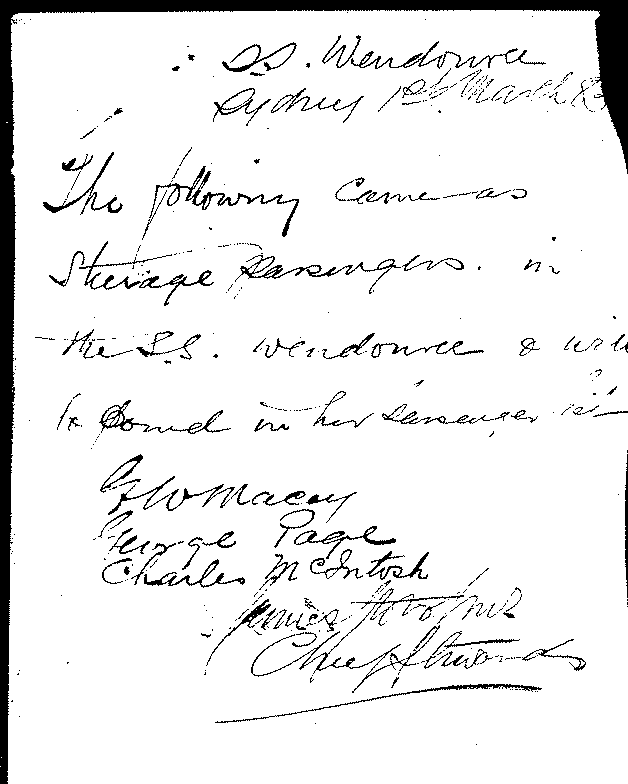 S.S. Wendouree
Sydney 1st March 83
The following came as
Steerage passengers. in
the S.S. Wendouree & will
be found in her passenger list
G W Macey
George Page
Charles McIntosh
James
Chief Steward